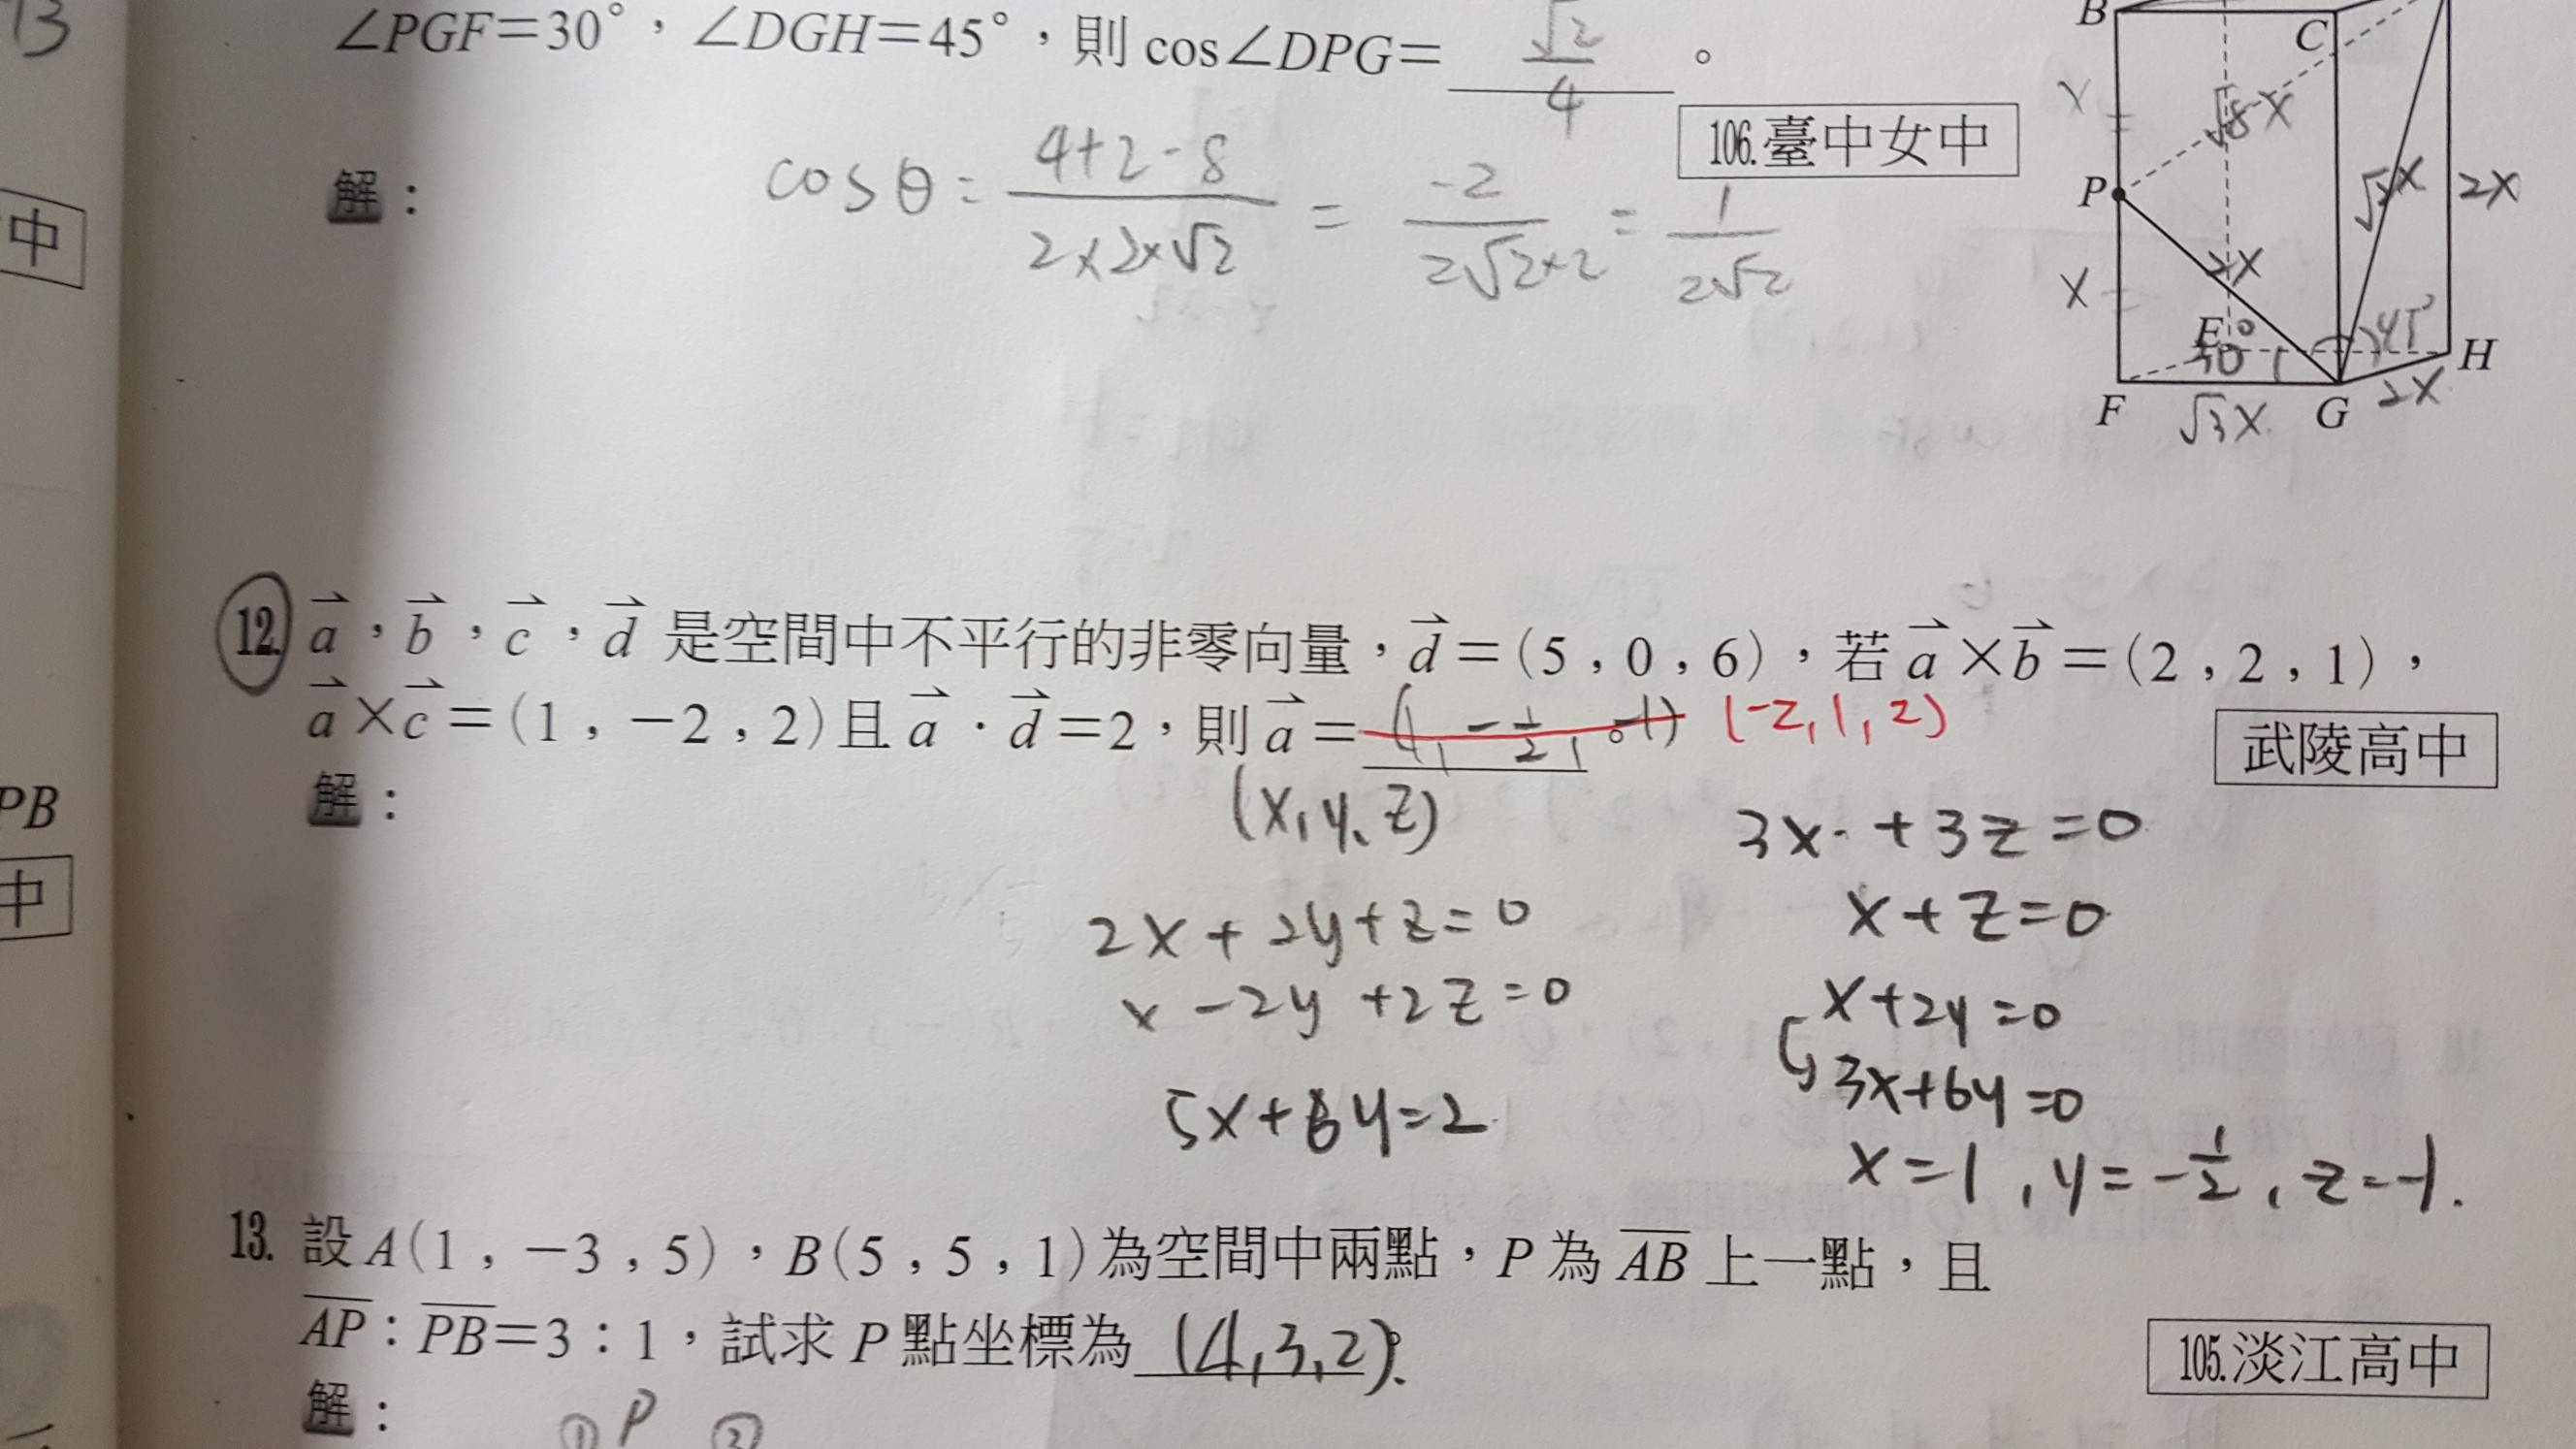 ∠PGF=30°,∠DGH=45°,則 cos∠DPG= √2/4 。
106.臺中女中
解:
cosθ = (4+2-8)/(2×2×√2) = -2/(2√2×2) = 1/(2√2)
B
C
X
√8X
P
√8X
2X
X
2X
E
30°
45°
H
F
√3X
G
2X
中
PB
中
12. a⃗,b⃗,c⃗,d⃗ 是空間中不平行的非零向量,d⃗=(5,0,6),若 a⃗×b⃗=(2,2,1),
a⃗×c⃗=(1,-2,2)且 a⃗·d⃗=2,則 a⃗= (1, -1/2, -1) 。 (-2,1,2)
武陵高中
解:
(x,y,z)
3x +3z=0
x+z=0
2x+2y+z=0
x-2y+2z=0
x+2y=0
3x+6y=0
5x+6y=2
x=1,y=-1/2,z=-1.
13. 設 A(1,-3,5),B(5,5,1)為空間中兩點,P 為 A̅B̅ 上一點,且
A̅P̅:P̅B̅=3:1,試求 P 點坐標為 (4,3,2)。
105.淡江高中
解:
① P ③